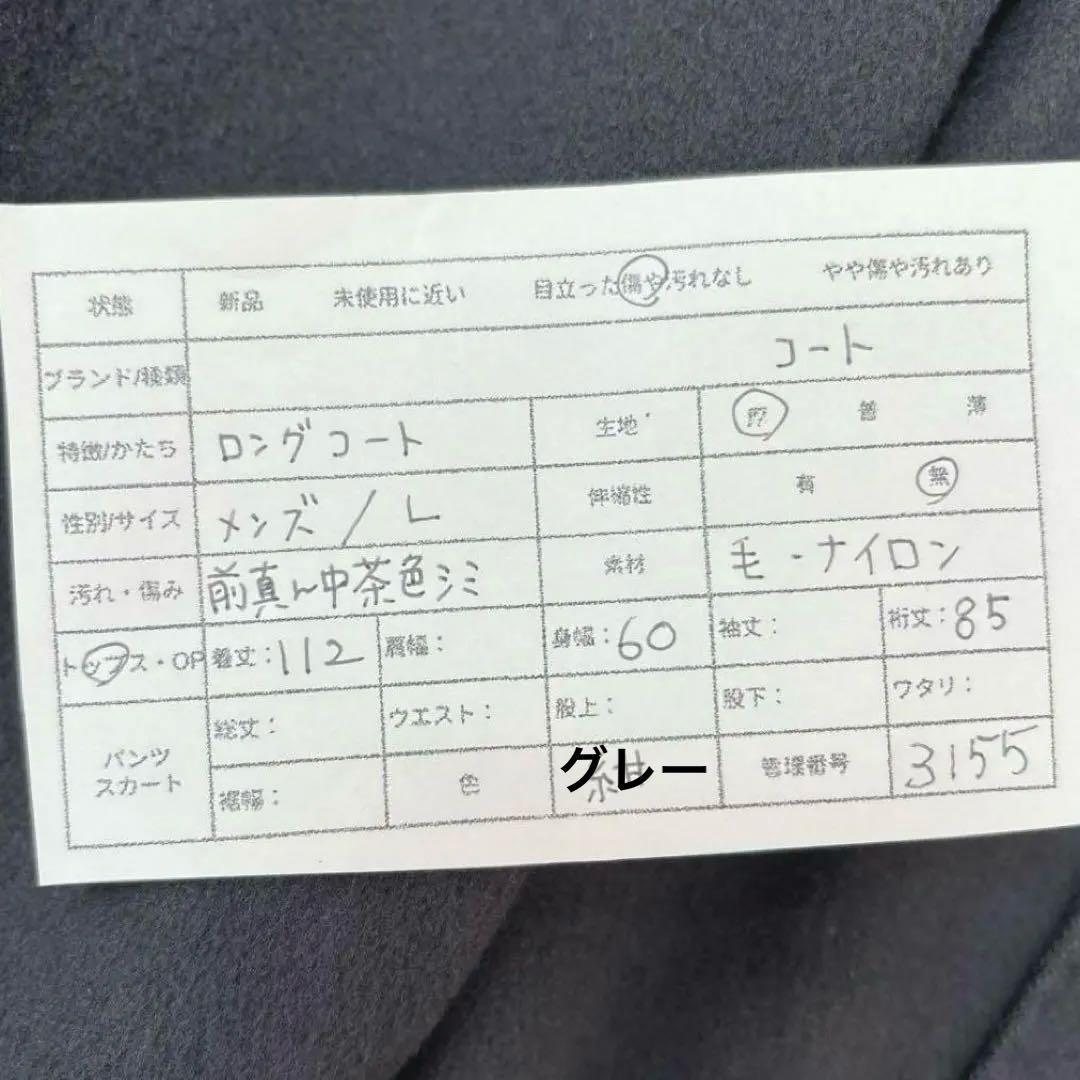 状態 新品 未使用に近い 目立った傷や汚れなし やや傷や汚れあり
ブランド/種類 コート
特徴/かたち ロングコート 生地 厚 普 薄
性別/サイズ メンズ/L 伸縮性 有 無
汚れ・傷み 前真ん中茶色シミ 素材 毛-ナイロン
トップス・OP 着丈:112 肩幅: 身幅:60 袖丈: 裄丈:85
パンツ スカート 総丈: ウエスト: 股上: 股下: ワタリ:
裾幅: 色 グレー 管理番号 3155